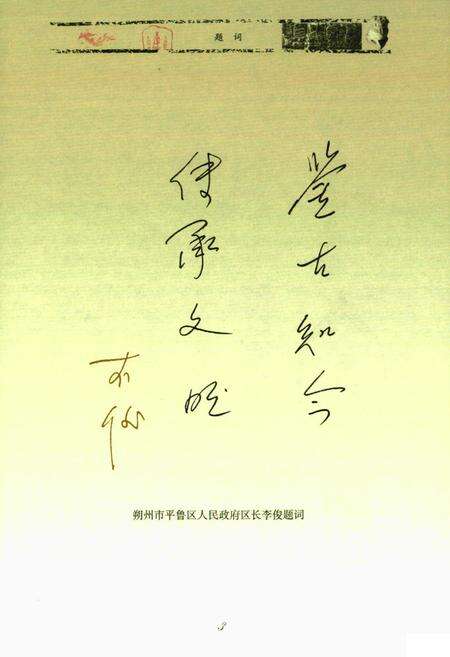 题词
鉴古知今
传承文明
李俊
朔州市平鲁区人民政府区长李俊题词
3